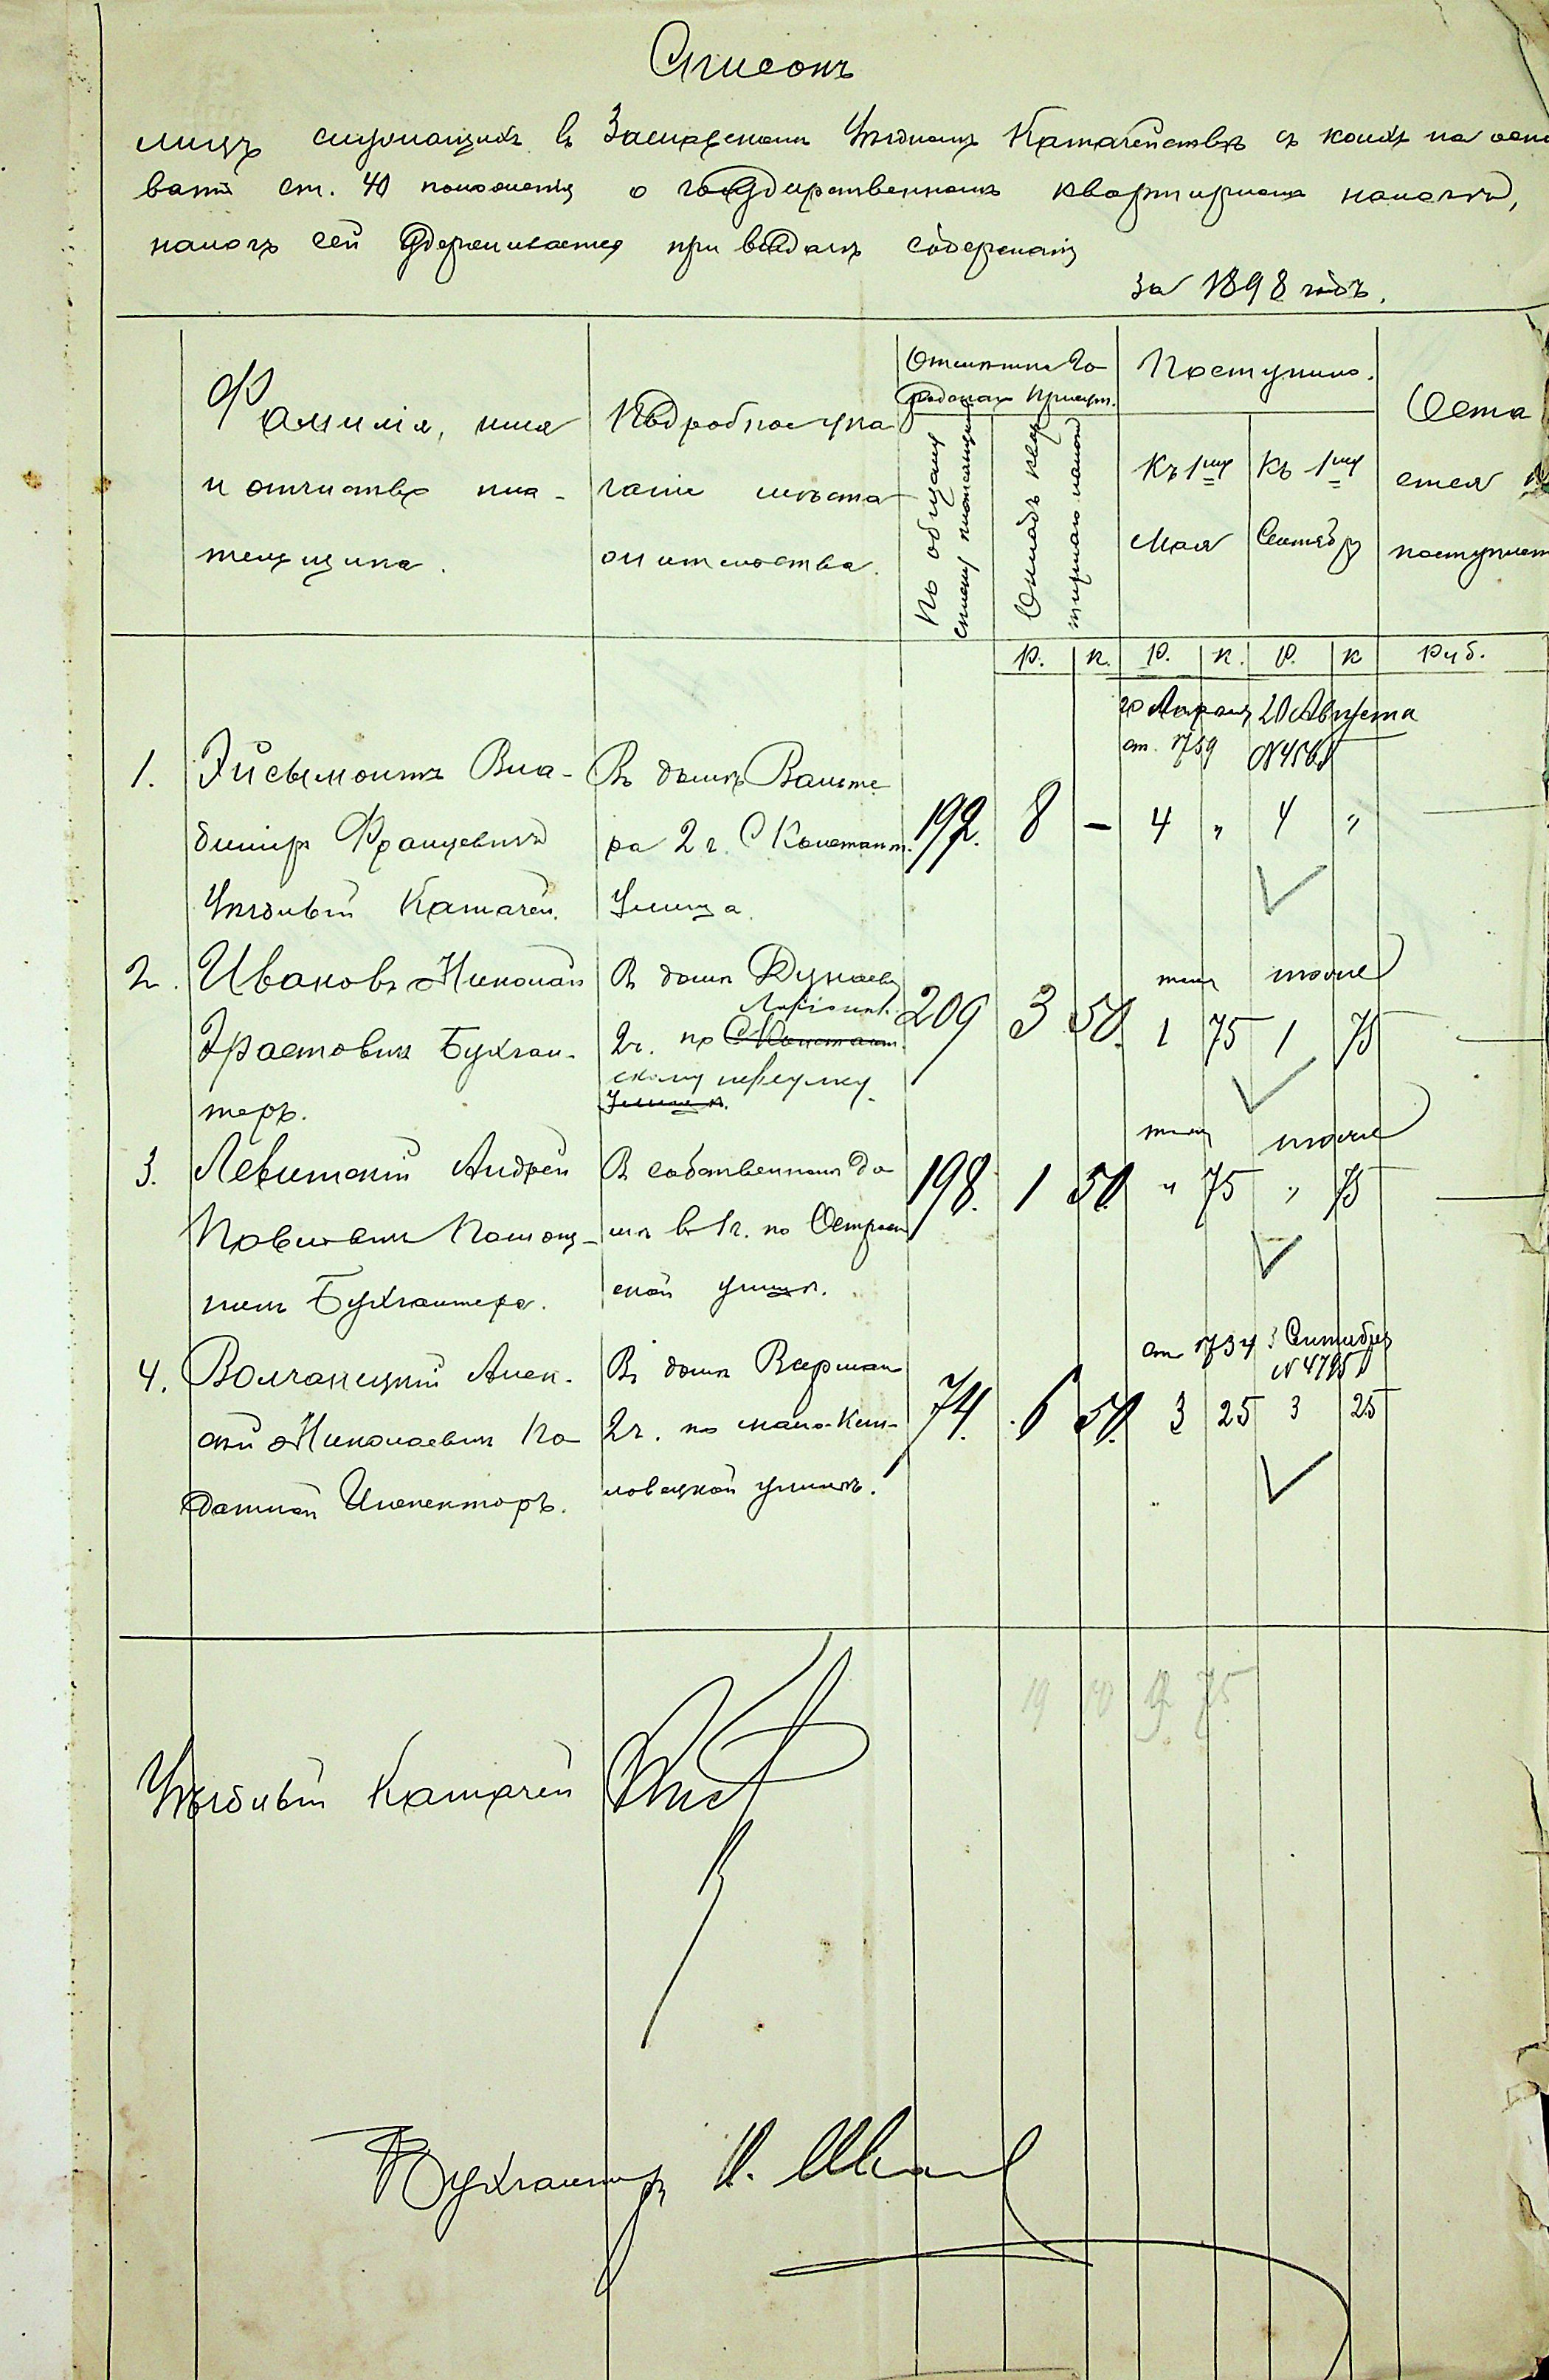 Списокъ
лицъ служащихъ въ Заславскомъ Уѣздномъ Казначействѣ съ коихъ на осно
ваніи ст. 40 положенія о государственномъ квартирномъ налогѣ,
налогъ сей удерживается при выдачѣ содержанія
за 1898 годъ.
Фамилія, имя
и отчество пла-
тельщика.
Подробное ука
заніе мѣста
жительства.
Отмѣтка Го
родскаго Присут.
По общему
списку плательщик
Окладъ квар
тирнаго налога
Поступило.
Къ 1му
Мая
Къ 1му
Сентября
Оста
ется
поступлен
Р. К. Р. К. Р. К Руб.
20 Апреля 20 Августа
ст. 1759
1. Эйсымонтъ Вла-
диміръ Францевичъ
Уѣздный Казначей.
Въ домѣ Вальте
ра 2 ч. С Константин.
Улица.
192. 8 – 4 „ 4 „
2. Ивановъ Николай
Эрастовичъ Бухгал-
теръ.
В домѣ Дунаева
2 ч. по
скому переулку
209 3 50. 1 75 1 75
3. Левитскій Андрей
Павловичъ Помощ-
никъ Бухгалтера.
В собственномъ до
мѣ в 1 ч. по Острож
ской улицѣ.
198. 1 50. „ 75 „ 75
ст 1734 3 Сентября
№ 4795
4. Волчанецкій Алек-
сѣй Николаевичъ По
датной Инспекторъ.
Въ домѣ Варман
2 ч. по мало-
улицѣ.
74. 6 50. 3 25 3 25
19 50 9 75
Уѣздный Казначей
Бухгалтеръ Н. Иванов